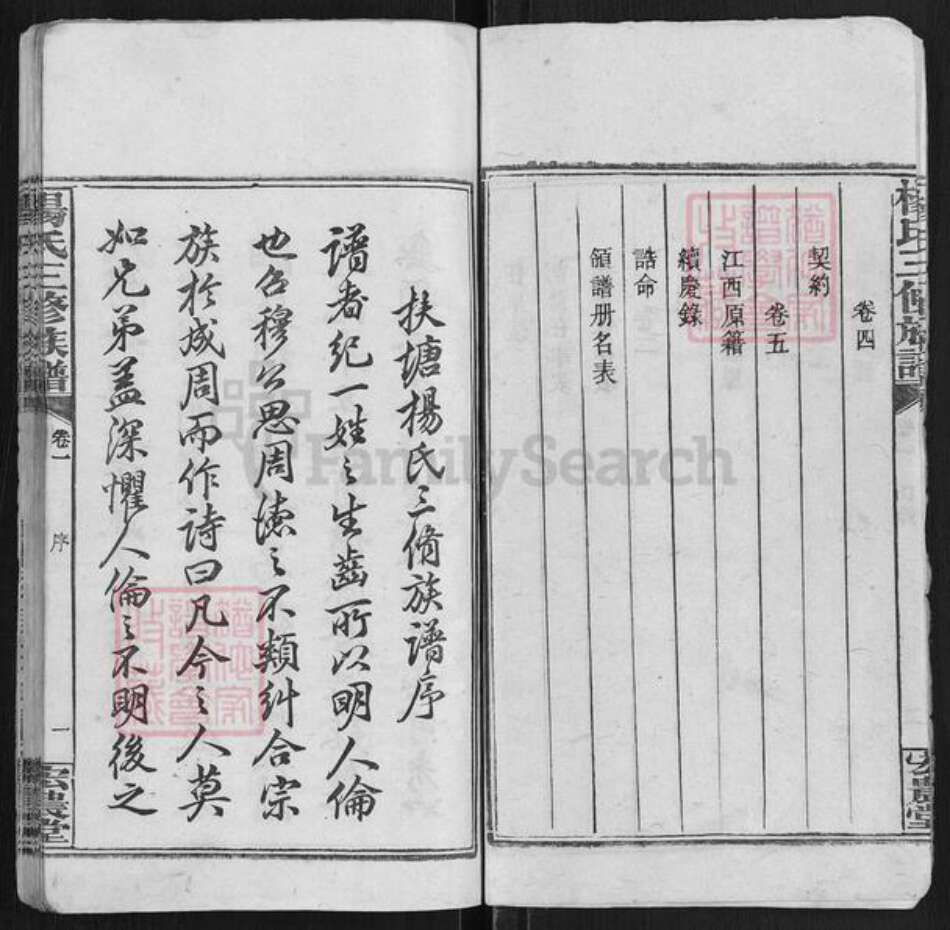 楊氏三修族譜
卷四
契約
卷五
江西原籍
續慶錄
誥命
領譜册名表
扶塘楊氏三脩族譜序
譜者紀一姓之生齒所以明人倫
也召穆公思周德之不類糾合宗
族於成周而作詩曰凡今之人莫
如兄弟蓋深懼人倫之不明後之
楊氏三修族譜
卷一
序
一
宏農堂
FamilySearch